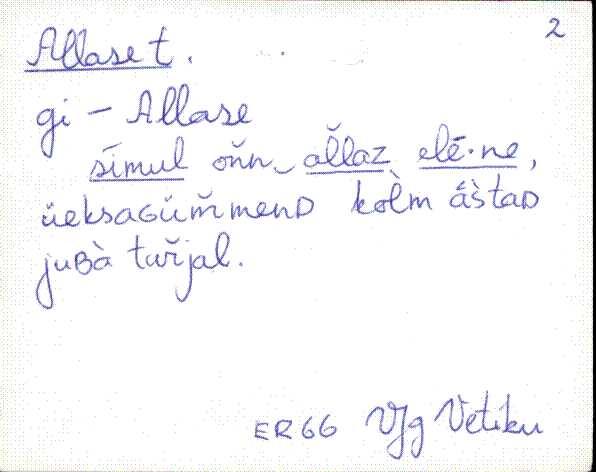 2
Allase t.
gi – Allase
sīmul oňn‿ aľlaz elē·ne,
üeksaGüm̌menD kòlm ā̀štaD
juBà tuřjal.
ER66 VJg Vetiku